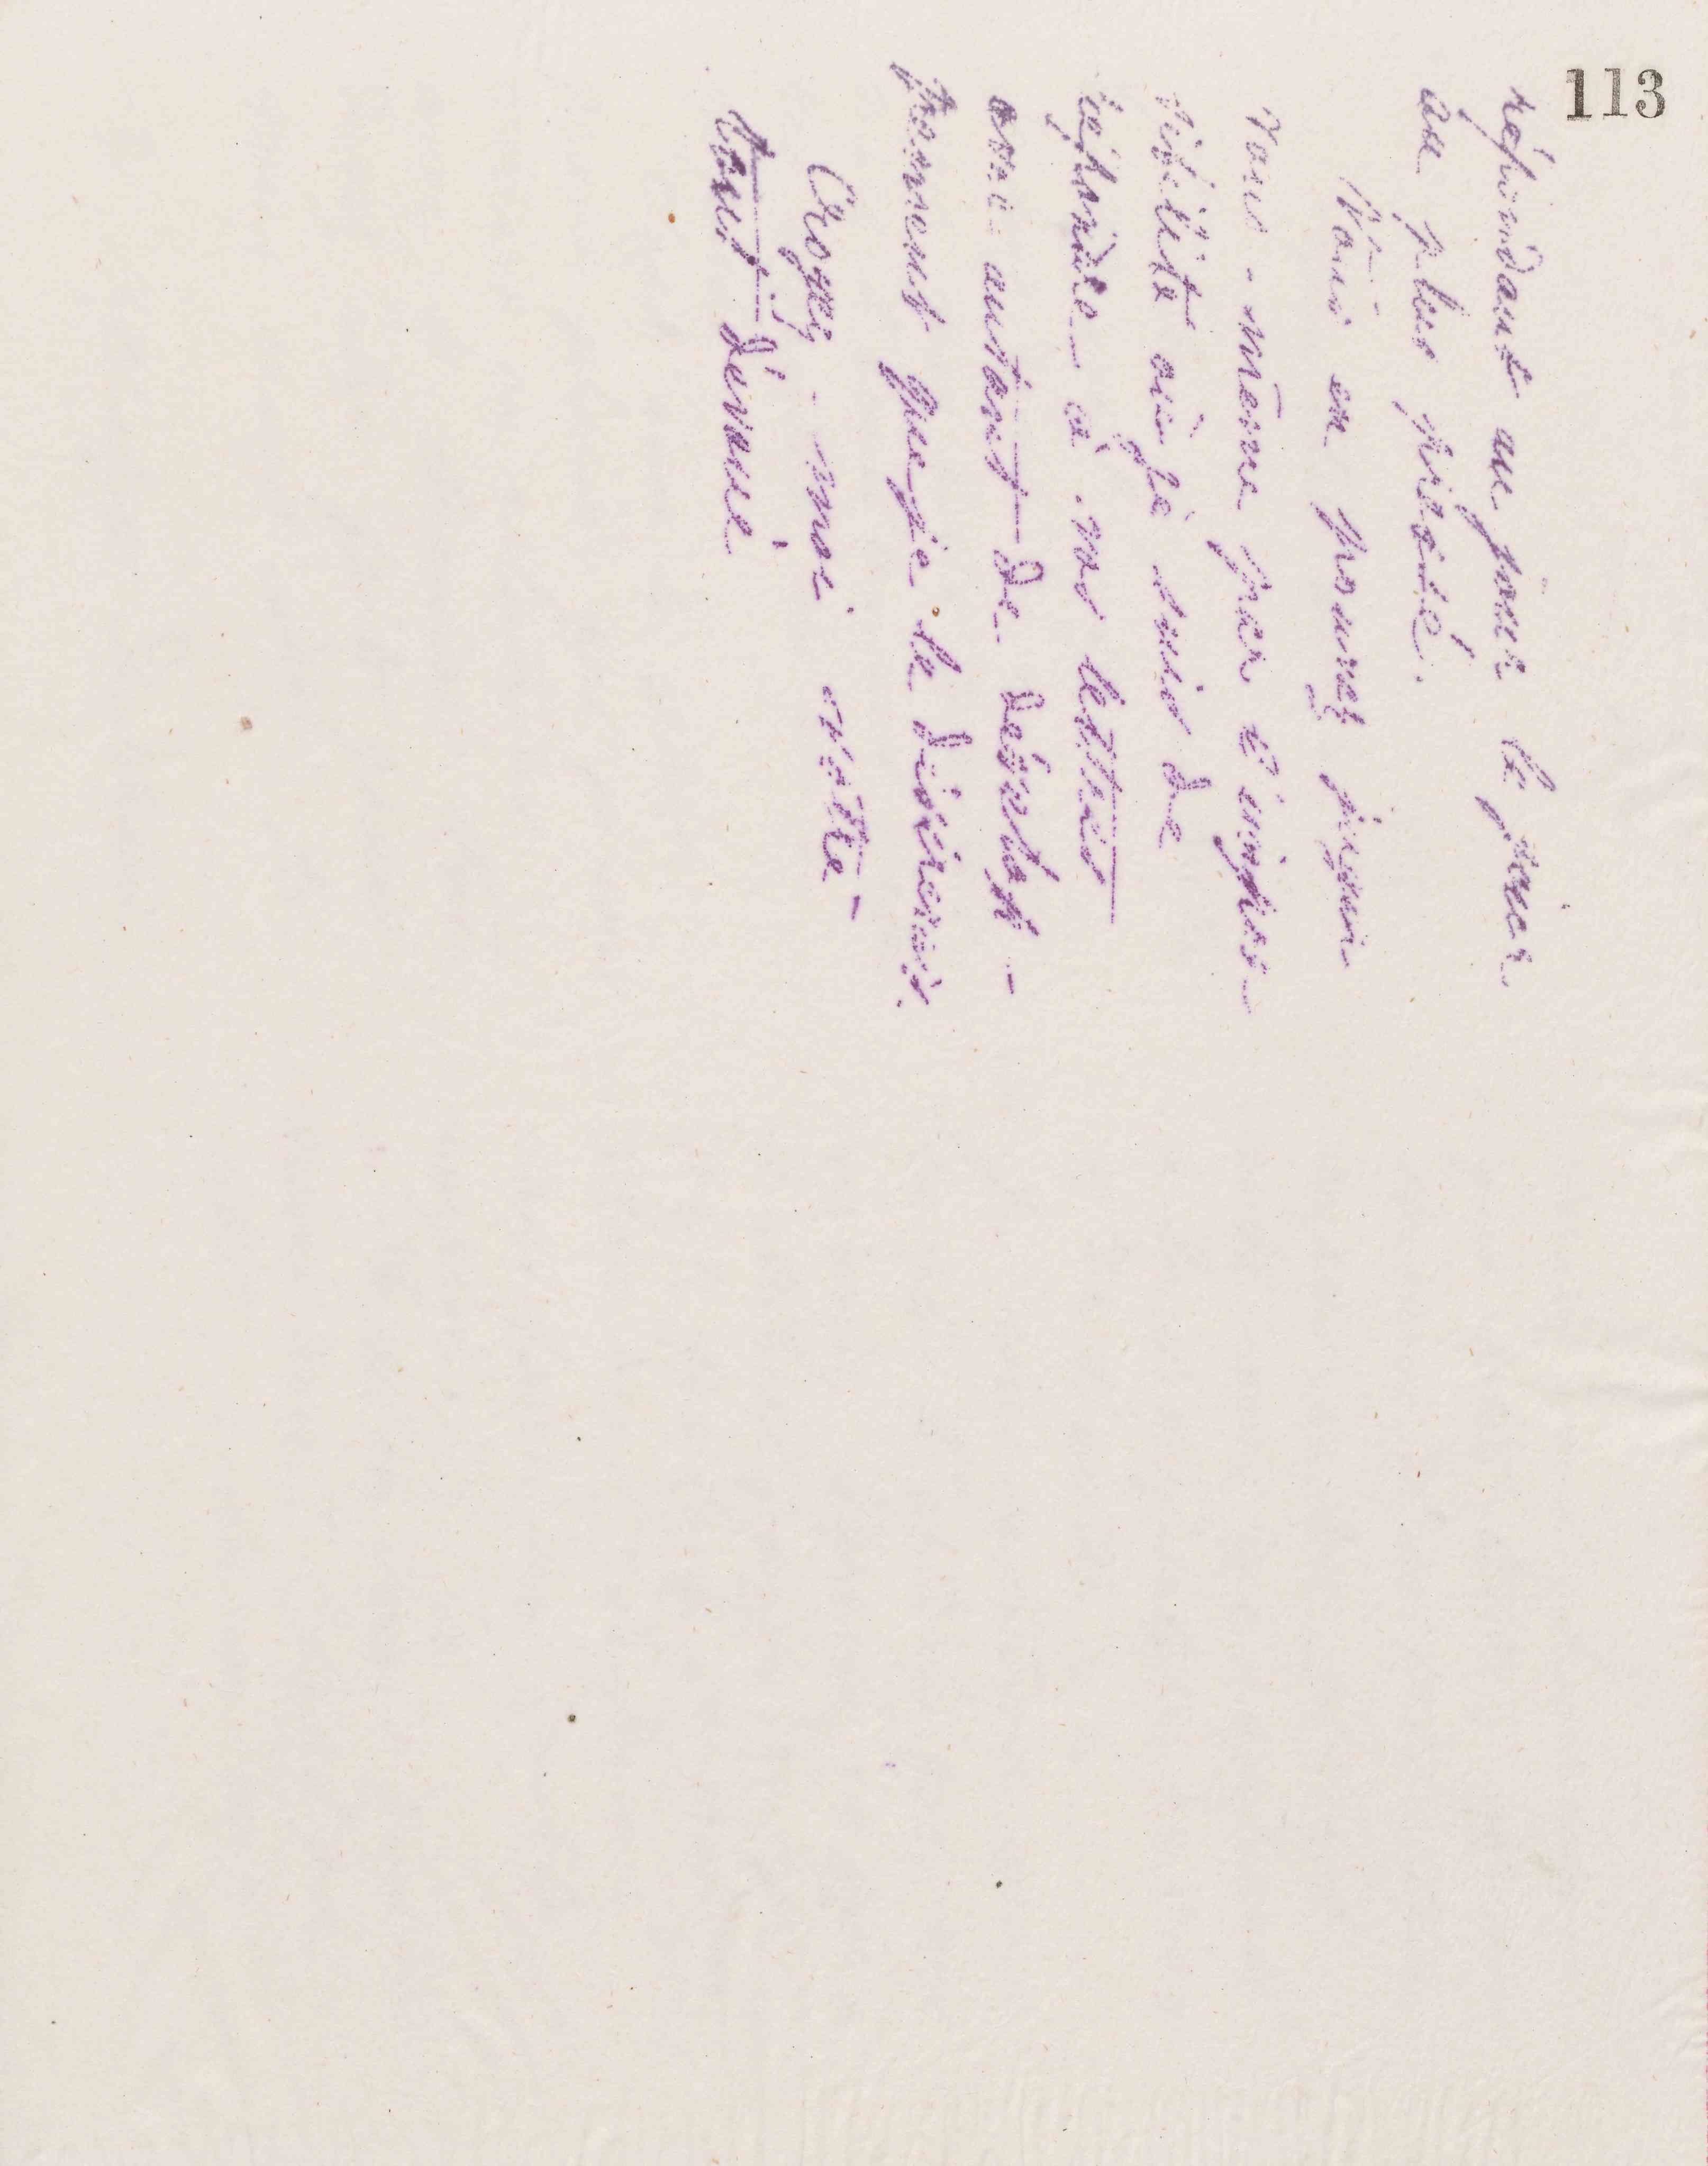 113
répondant au jour le jour
au plus pressé.
Vous en pouvez juger
vous-même par l'impos-
sibilité où je suis de
répondre à vos lettres
avec autant de dévelop-
pement que je le désirerais.
Croyez-moi votre
tout dévoué